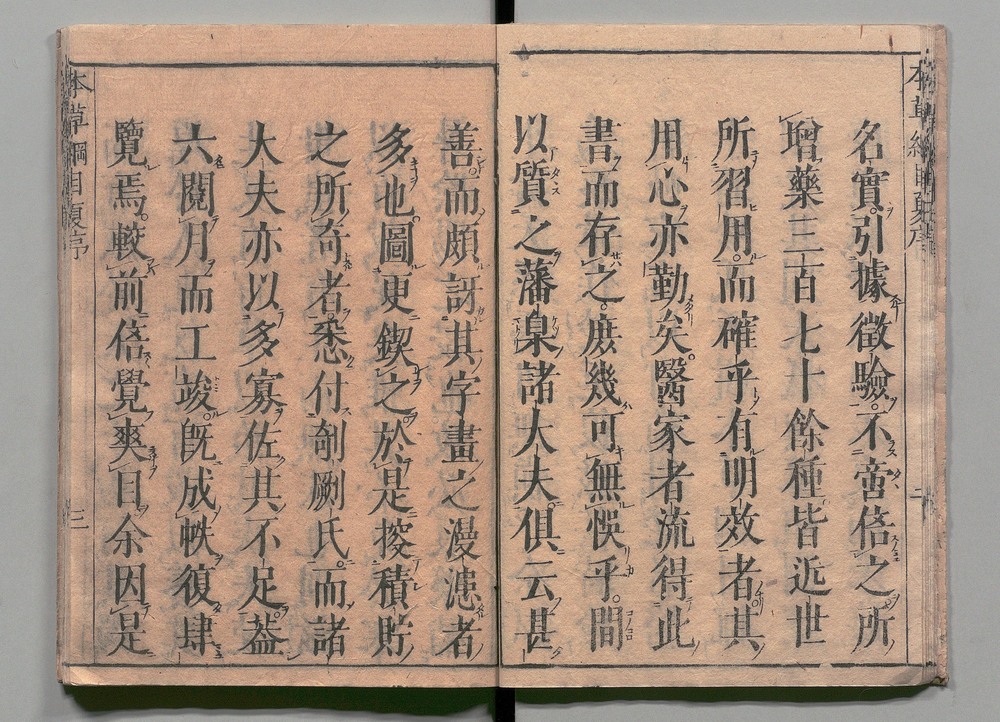 名實引據徵驗不啻倍之所
增藥三百七十餘種皆近世
所習用而確乎有明效者其
用心亦勤矣醫家者流得此
書而存之庶幾可無悞乎間
以質之藩臬諸大夫俱云甚
善而頗訝其字畫之漫漶者
多也圖更鍥之於是搜積貯
之所奇者悉付剞劂氏而諸
大夫亦以多寡佐其不足蓋
六閱月而工竣旣成帙復肆
覽焉較前倍覺爽目余因是
本草綱目夏序
三